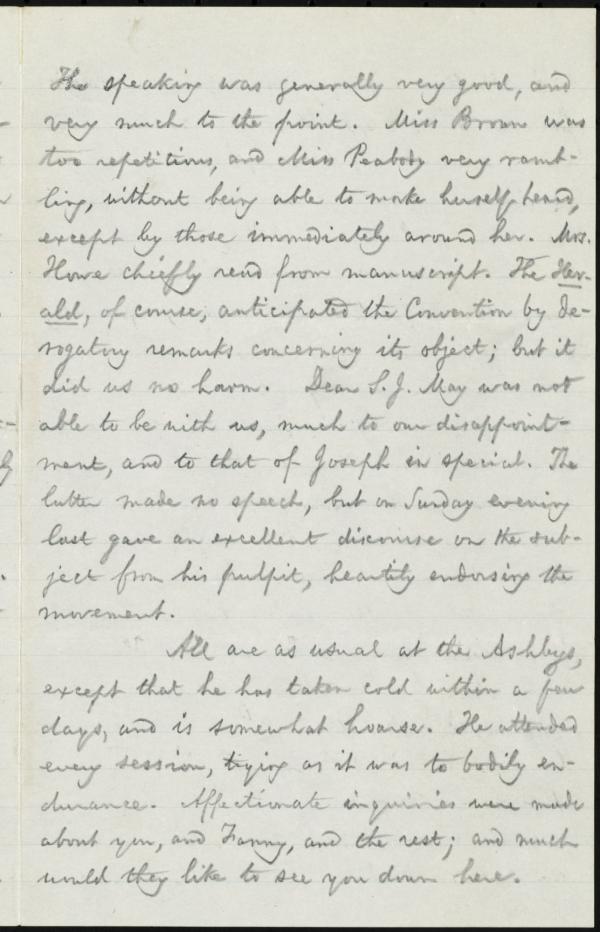 The speaking was generally very good, and
very much to the point. Miss Brown was
too repetitious, and Miss Peabody very ramb-
ling, without being able to make herself heard,
except by those immediately around her. Mrs.
Howe chiefly read from manuscript. The Her-
ald, of course, anticipated the Convention by de-
rogatory remarks concerning its object; but it
did us no harm. Dear S. J. May was not
able to be with us, much to our disappoint-
ment, and to that of Joseph in special. The
latter made no speech, but on Sunday evening
last gave an excellent discourse on the sub-
ject from his pulpit, heartily endorsing the
movement.
All are as usual at the Ashbys,
except that he has taken cold within a few
days, and is somewhat hoarse. He attended
every session, trying as it was to bodily en-
durance. Affectionate inquiries were made
about you, and Fanny, and the rest; and much
would they like to see you down here.